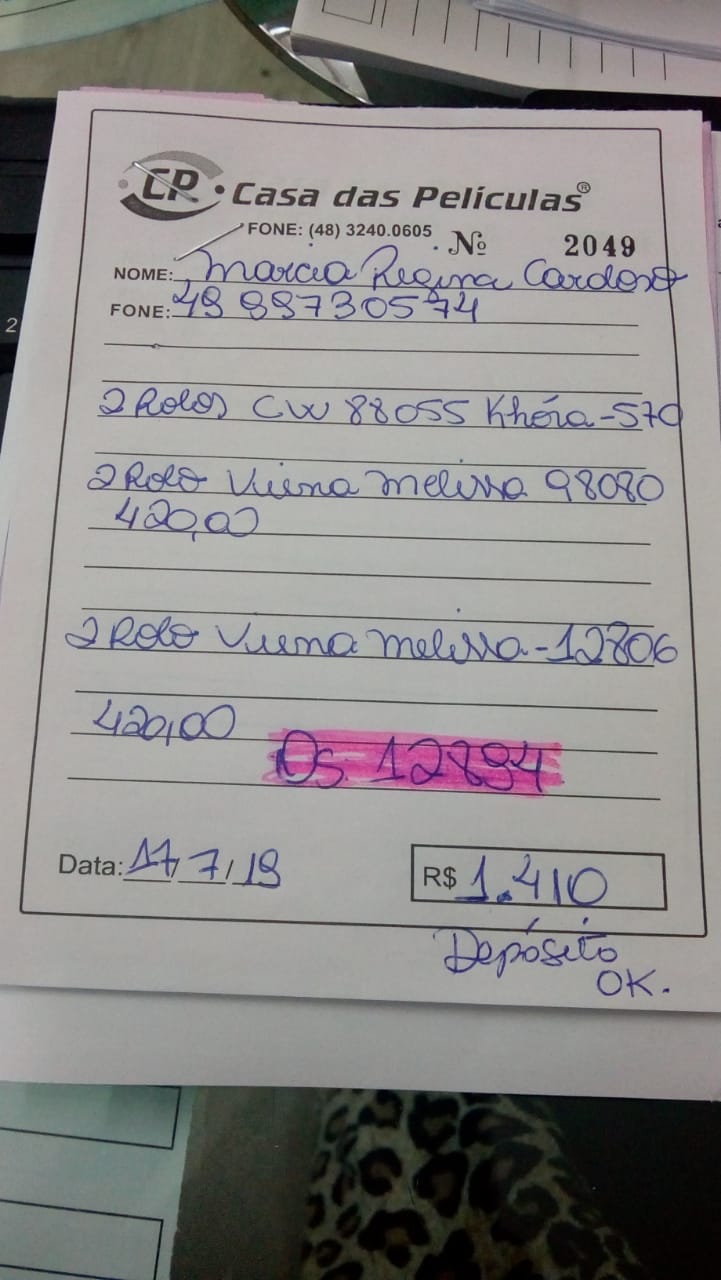 CP Casa das Películas®
FONE: (48) 3240.0605 Nº 2049
NOME: Marcia Regina Cardoso
FONE: 49 99730574
2 Rolos CW 88055 Khóra-570
2 Rolo Viena Melissa 98080
420,00
2 Rolo Viena Melissa-12806
420,00
Os 12894
Data: 17/7/19 R$ 1.410
Depósito
OK.
2